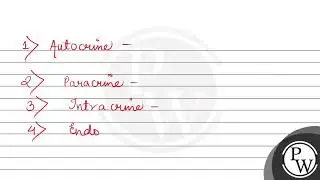 1) Autocrine -
2) Paracrine -
3) Intracrine -
4) Endo
PW
PW